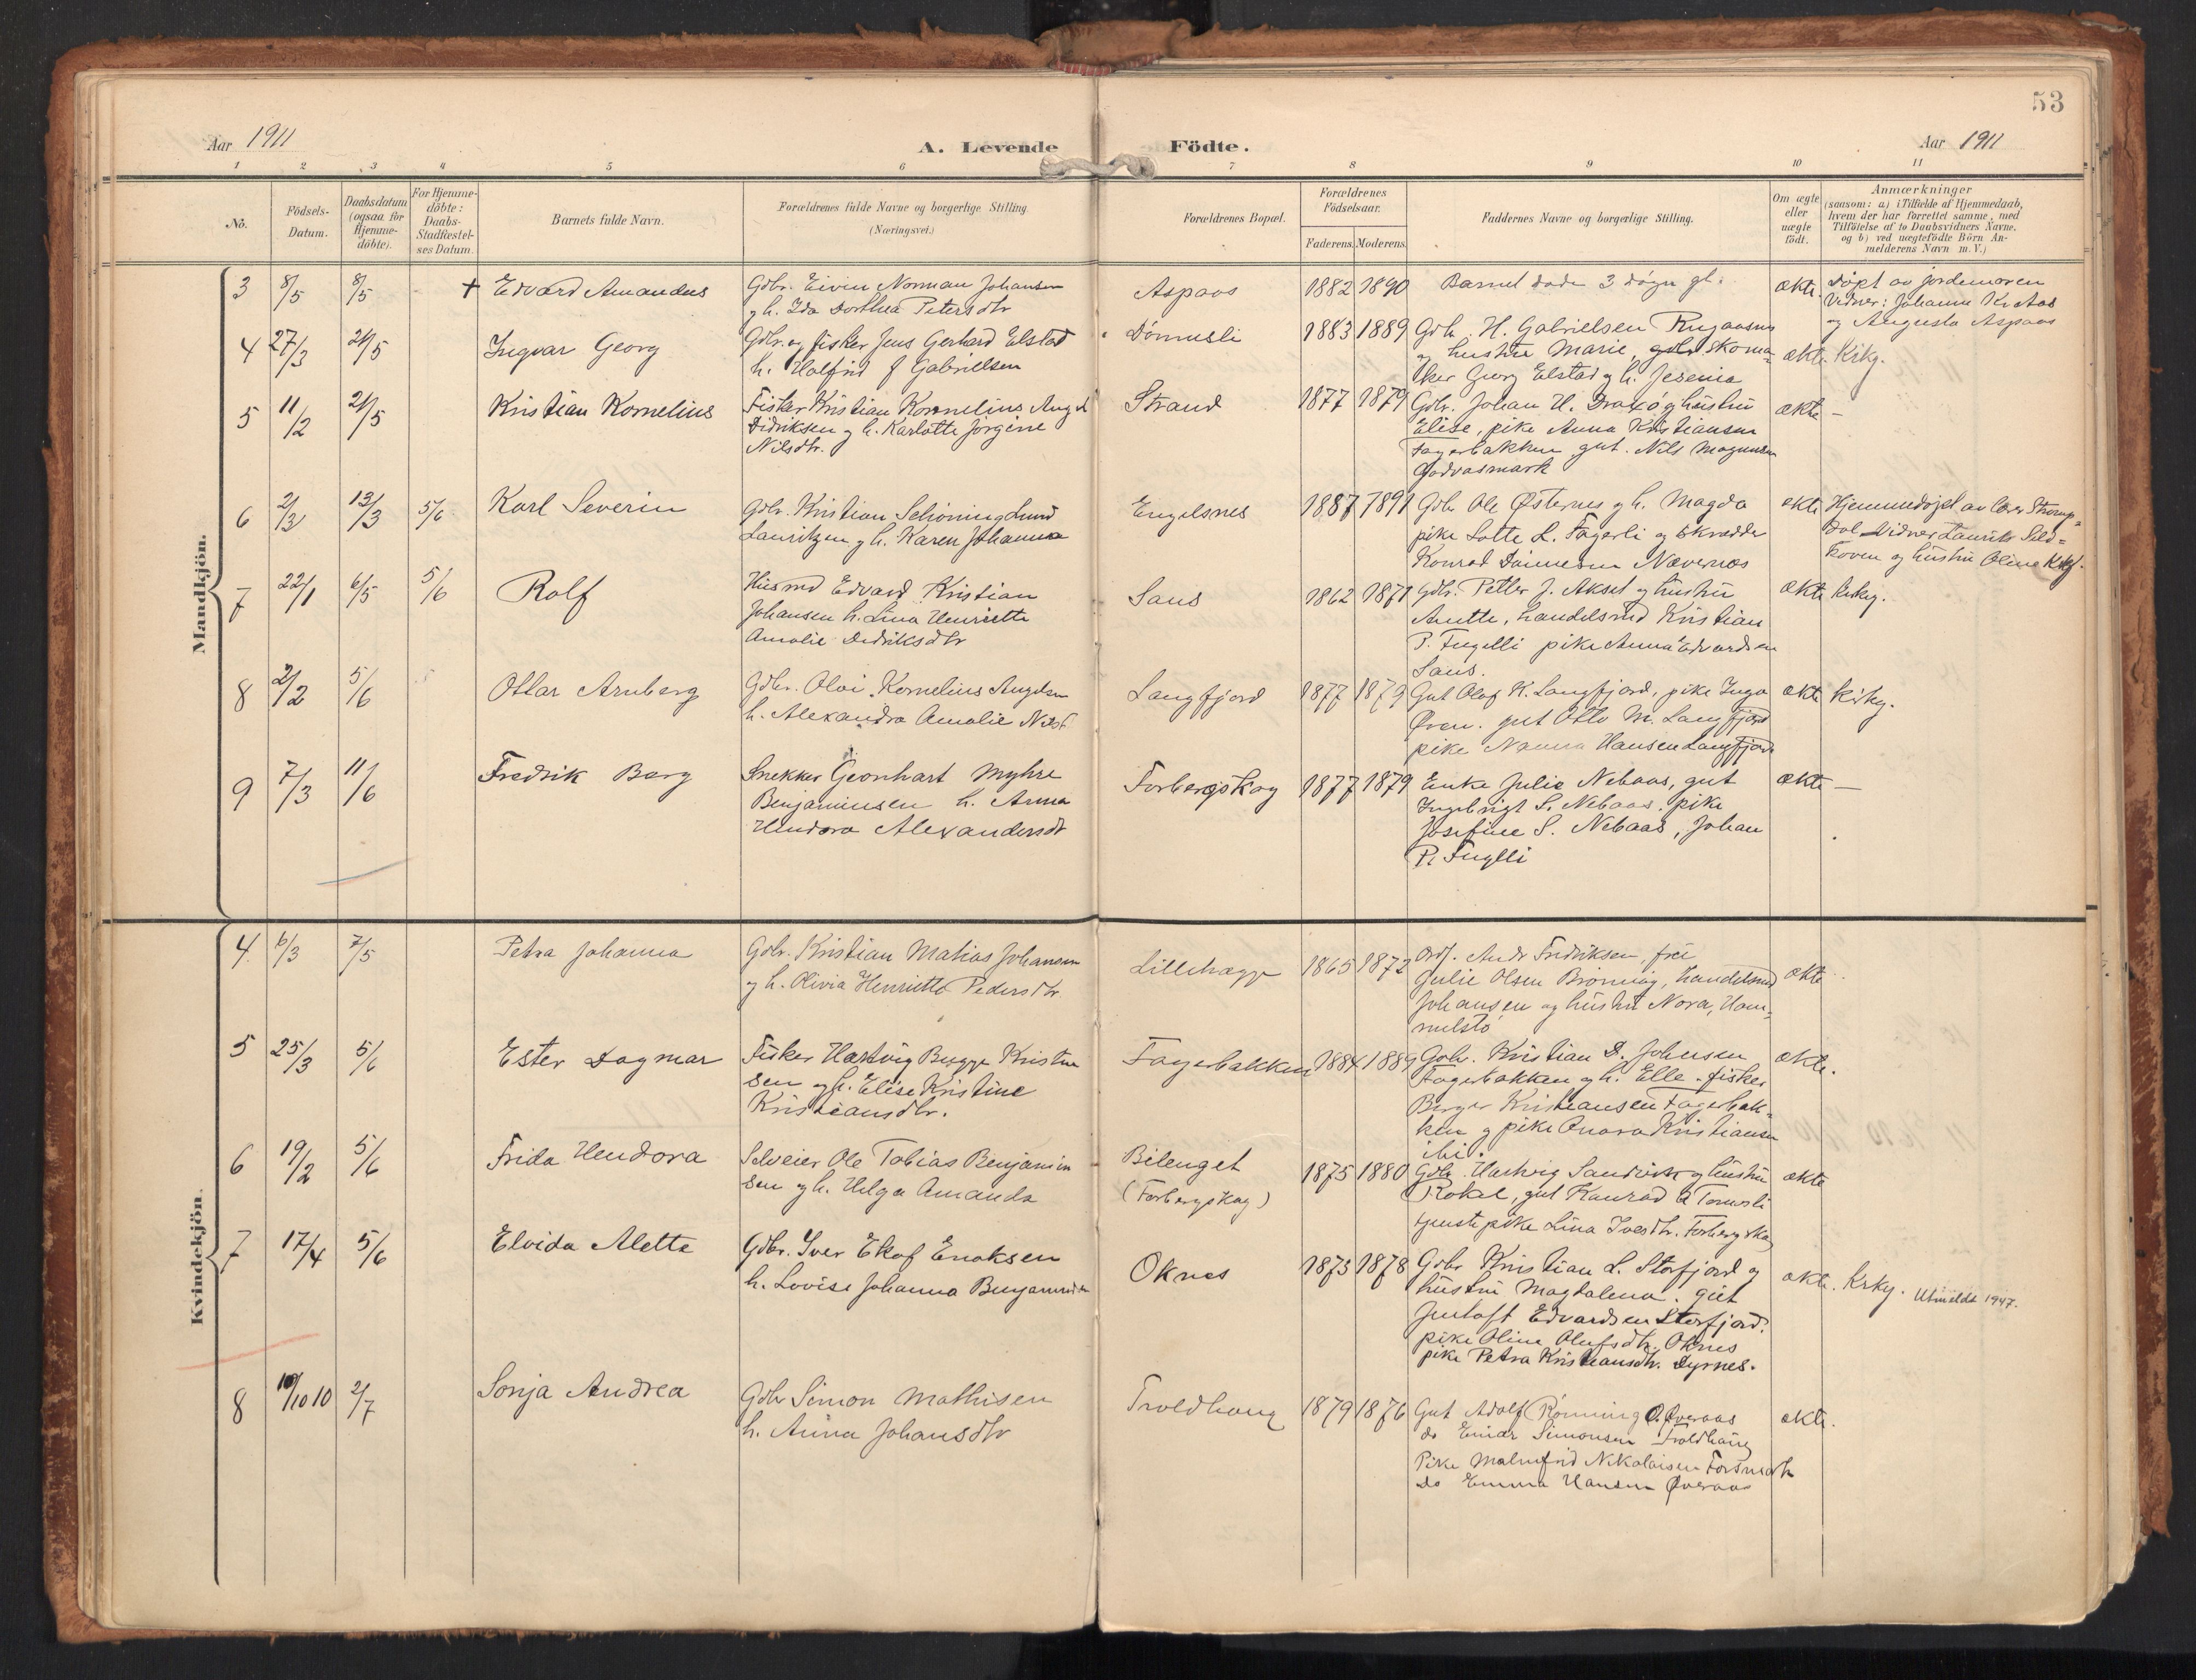 53
Aar 1911
A. Levende Födte.
Aar 1911
1 2 3 4 5 6 7 8 9 10 11
No.
Födsels-
Datum.
Daabsdatum
(ogsaa for
Hjemme-
döbte).
For Hjemme-
döbte:
Daabs-
Stadfæstel-
ses Datum.
Barnets fulde Navn.
Forældrenes fulde Navne og borgerlige Stilling
(Næringsvei.)
Forældrenes Bopæl.
Forældrenes
Födselsaar.
Faderens. Moderens.
Faddernes Navne og borgerlige Stilling.
Om ægte
eller
uægte
födt.
Anmærkninger
(saasom: a) i Tilfælde af Hjemmedaab,
hvem der har forrettet samme, med
Tilföielse af to Daabsvidners Navne,
og b) ved uægtefödte Börn An-
melderens Navn m. V.)
Mandkjön.
3 8/5 8/5 + Edvard Amandus
Gdbr. Eivin Norman Johansen
og h. Ida Dorthea Petersdtr
Aspaas 1882 1890
Barnet døde 3 døgn gl.
ækte.
Døpt av jordemoren
Vidner: Johanna Kr. Aas
og Augusta Aspaas
4 27/3 21/5 Ingvar Georg
Gdbr. og fisker Jens Gerhard Elstad
h. Halfrid J Gabrielsen
Dømusli 1883 1889
Gdb. H. Gabrielsen
og hustru Marie, gdbr skoma-
ker Georg Elstad og h. Jesenia
ækte. Krkg.
5 11/2 21/5 Kristian Kornelius
Fisker Kristian Kornelius Angel
Didriksen og h. Karlotte Jørgine
Nilsdtr.
Strand 1877 1879
Gdbr. Johan H. og hustru
Elise, pike Anna Kristiansen
Fagerbakken, gut. Nils Magnusen
Godvasmark
ækte —
6 2/3 13/3 5/6 Karl Severin
Gdbr. Kristian Schöning Lund
Lauritzen og h. Karen Johanna
Engelsnes 1887 1891
Gdbr Ole Østernes og h. Magda
pike Lotte L. Fagerli og skrædder
Konrad Nævernes
ækte
Hjemmedøpt av Lærer
dal. Vidner Laurits Sild-
koven og hustru Oline Krkg.
7 22/1 6/5 5/6 Rolf
Husmd Edvard Kristian
Johansen h. Lina Henriette
Amalie Dedriksdtr
Saus 1862 1871
Gdbr. Petter J. Aksel og hustru
Anette, handelsmd Kristian
P. Fugelli pike Anna Edvardsen
Saus.
ækte Krkg.
8 2/2 5/6 Ottar Arnberg
Gdbr. Olai Kornelius Angelsen
h. Alexandra Amalie Nilsd.
Langfjord 1877 1879
Gut Olaf K. Langfjord, pike Inga
Øren. gut Otto M. Langfjord
pike Nanna Hansen Langfjord
ækte krkg.
9 7/3 11/6 Fredrik Berg
Snekker Geonhart Myhre
Benjaminsen h. Anna
Hendora Alexandersdtr
Forbergskog 1877 1879
Enke Julie Nebaas, gut
Ingebrigt S. Nebaas, pike
Josefine S. Nebaas, Johan
P. Fuglli
ækte —
Kvindekjön.
4 6/3 7/5 Petra Johanna
Gdbr. Kristian Matias Johansen
og h. Olivia Henriette Pedersdtr.
Lillehagge 1865 1872
Ordf. Andr Fredriksen, frøi
Julie Olsen Brönnöy, handelsmd
Johansen og hustru Nora, Hom-
mulstø
ækte
5 25/3 5/6 Ester Dagmar
Fisker Hartvig Bugge Kristen
sen og h. Elise Kristine
Kristiansdtr.
Fagerbakken 1884 1889
Gdbr. Kristian D. Johansen
Fagerbakken og h. Elle. fisker
Birger Kristiansen Fagerbak-
ken og pike Kristiansen
ibi.
ækte.
6 19/2 5/6 Frida Hendora
Selveier Ole Tobias Benjamin
sen og h. Helga Amanda
Bilenget
(Forbergskog)
1875 1880
Gdbr. Hartvig Sandvik og hustru
Rokal, gut Konrad
tjenstepike Lina Ivesdtr. Forbergskog
ækte
7 17/4 5/6 Elvida Alette
Gdbr. Iver Ekof Enoksen
h. Lovise Johanna Benjaminsdtr
Oknes 1873 1878
Gdbr Kristian L. Storfjord og
hustru Magdalena. gut
Gustaft Edvardsen Storfjord.
pike Oline Olufsdtr. Oknes
pike Petra Kristiansdtr. Dyrnes.
ækte. Krkg. Utmeldt 1947.
8 10/10 10 2/7 Sonja Andrea
Gdbr Simon Mathisen
h. Anna Johansdtr
Troldhaug 1879 1876
Gut Adolf Rønning O. Øveraas
do Einar Simonsen Troldhaug
Pike Malmfrid Nikolaisen Forsmark
do Emma Hansen Øveraas
ækte.